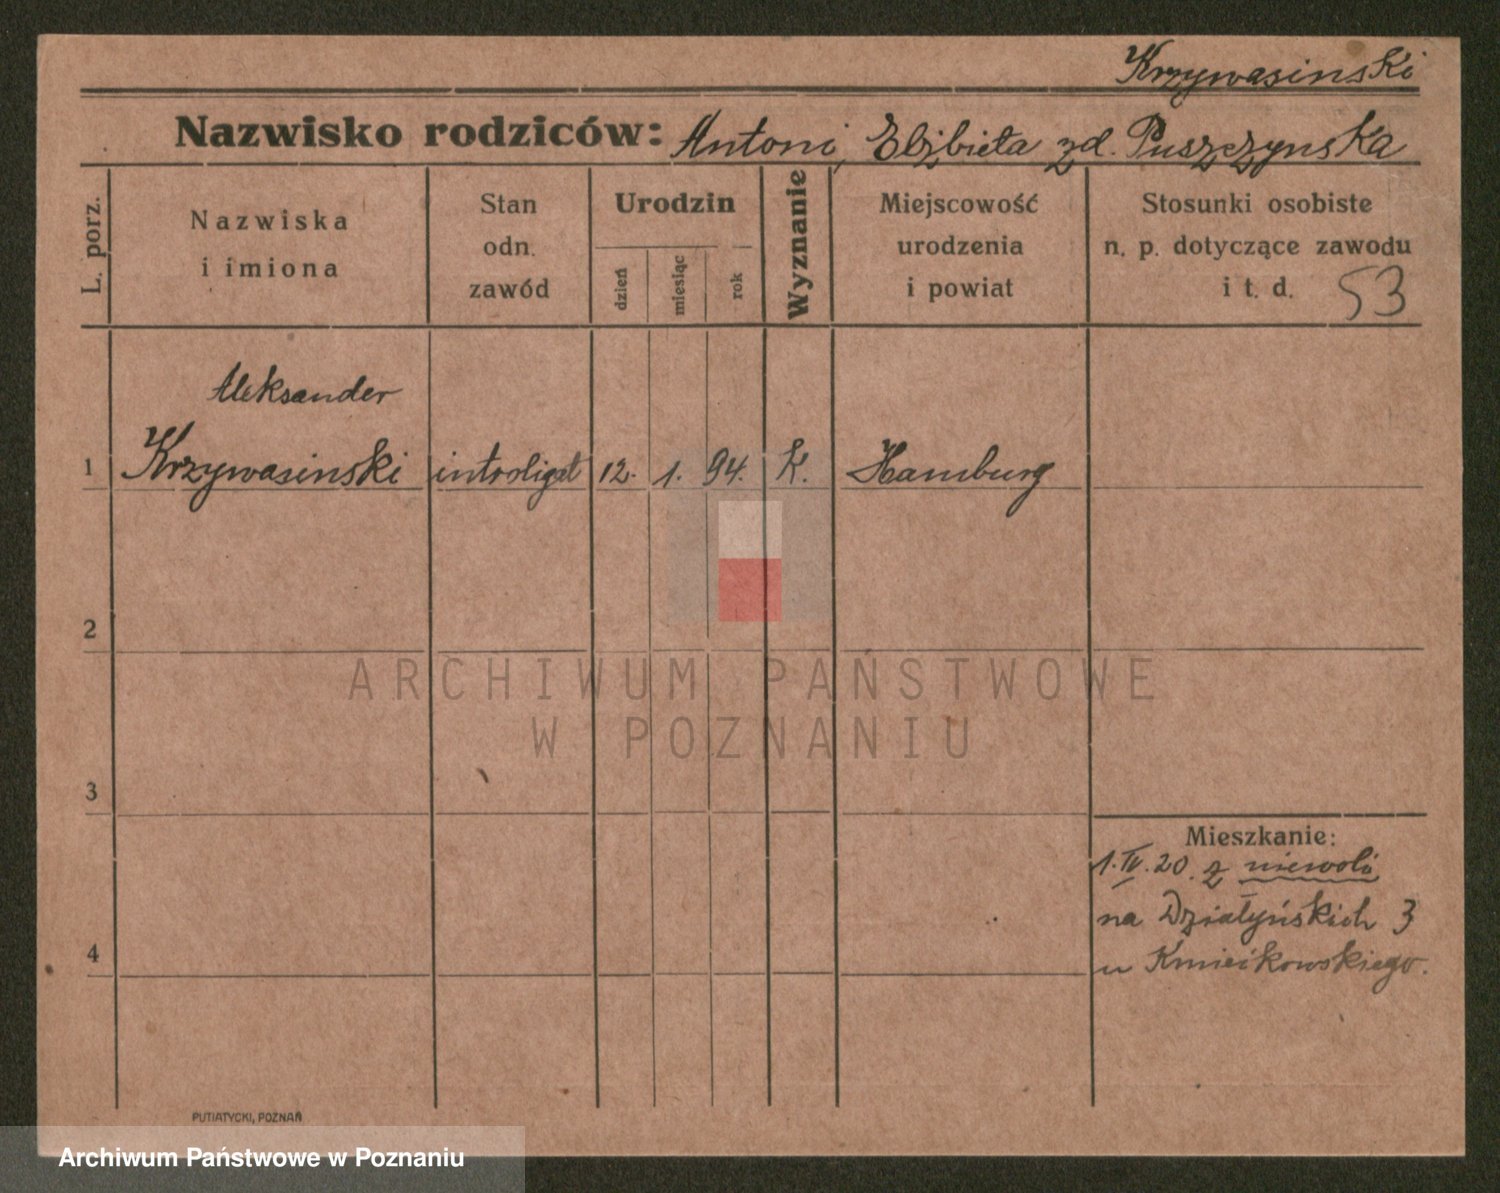 Krzywasinski
Nazwisko rodziców: Antoni, Elżbieta zd. Puszczynska
L. porz.
Nazwiska
i imiona
Stan
odn.
zawód
Urodzin
dzień
miesiąc
rok
Wyznanie
Miejscowość
urodzenia
i powiat
Stosunki osobiste
n. p. dotyczące zawodu
i t. d.
53
Aleksander
1 Krzywasinski introligat 12. 1. 94. K. Hamburg
2
ARCHIWUM PAŃSTWOWE
W POZNANIU
3
Mieszkanie:
1.IV.20. z niewoli
na Działyńskich 3
u Kmiećkowskiego.
4
PUTIATYCKI, POZNAŃ
Archiwum Państwowe w Poznaniu